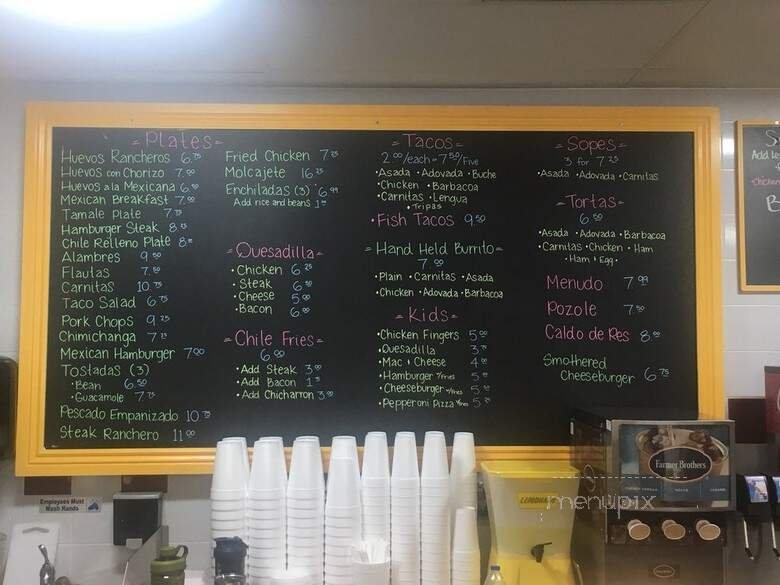 -Plates-
Huevos Rancheros 6.75
Huevos con Chorizo 7.00
Huevos a la Mexicana 6.50
Mexican Breakfast 7.00
Tamale Plate 7.75
Hamburger Steak 8.75
Chile Relleno Plate 8.00
Alambres 9.50
Flautas 7.50
Carnitas 10.75
Taco Salad 6.75
Pork Chops 9.25
Chimichanga 7.75
Mexican Hamburger 7.00
Tostadas (3)
•Bean 6.50
•Guacamole 7.75
Pescado Empanizado 10.75
Steak Ranchero 11.00
Fried Chicken 7.75
Molcajete 16.25
Enchiladas (3) 6.99
Add rice and beans
-Quesadilla-
•Chicken 6.25
•Steak 6.50
•Cheese 5.00
•Bacon 6.00
-Chile Fries-
6.00
•Add Steak 3.00
•Add Bacon
•Add Chicharron 3.00
-Tacos-
2.00/each - 7.50/Five
•Asada •Adovada •Buche
•Chicken •Barbacoa
•Carnitas •Lengua
•Tripas
•Fish Tacos 9.50
-Hand Held Burrito-
7.00
•Plain •Carnitas •Asada
•Chicken •Adovada •Barbacoa
-Kids-
•Chicken Fingers 5.00
•Quesadilla
•Mac & Cheese 4.00
•Hamburger w/fries
•Cheeseburger w/fries
•Pepperoni Pizza w/fries
-Sopes-
3 for 7.25
•Asada •Adovada •Carnitas
-Tortas-
6.50
•Asada •Adovada •Barbacoa
•Carnitas •Chicken •Ham
•Ham & Egg•
Menudo 7.99
Pozole 7.50
Caldo de Res 8.00
Smothered
Cheeseburger 6.75
Add
Employees Must
Wash Hands
Farmer Brothers
menupix